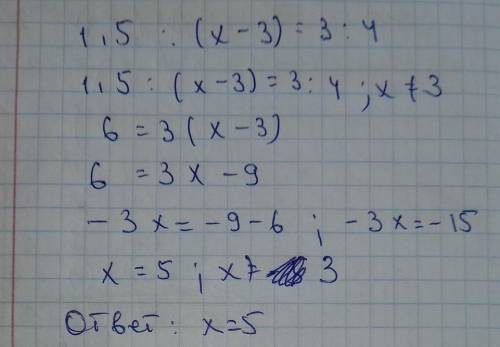 1,5 : (x-3) = 3 : 4
1,5 : (x-3) = 3 : 4 ; x ≠ 3
6 = 3 (x-3)
6 = 3x - 9
-3x = -9-6 ; -3x = -15
x = 5 ; x ≠ 3
Ответ: x=5